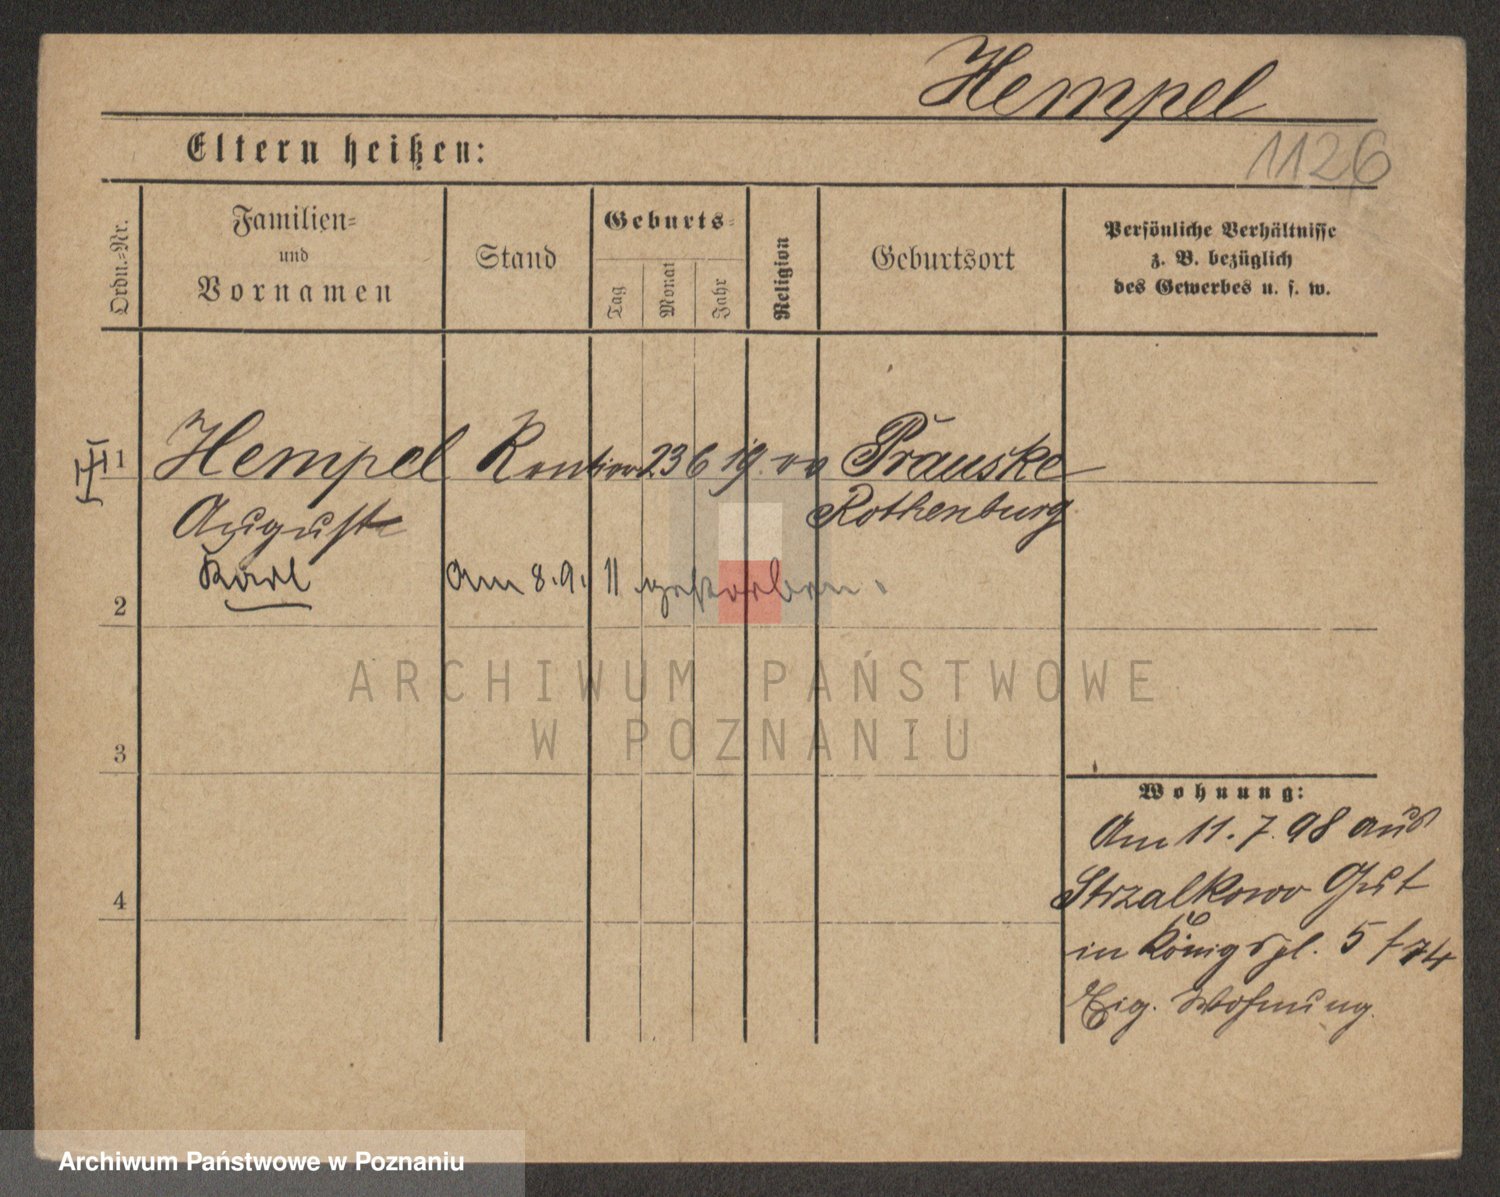 Hempel
1126
Eltern heißen:
Ordn.-Nr.
Familien-
und
Vornamen
Stand
Geburts-
Tag
Monat
Jahr
Religion
Geburtsort
Persönliche Verhältnisse
z. B. bezüglich
des Gewerbes u. s. w.
1 Hempel Rentier 23 6 19 Prauske
August Rothenburg
Karl am 8.9. 11 gestorben.
2
3
4
Wohnung:
Am 11.7.98 aus
Strzalkowo Gut
in Königspl. 5
Eig. Wohnung.
ARCHIWUM PAŃSTWOWE
W POZNANIU
Archiwum Państwowe w Poznaniu